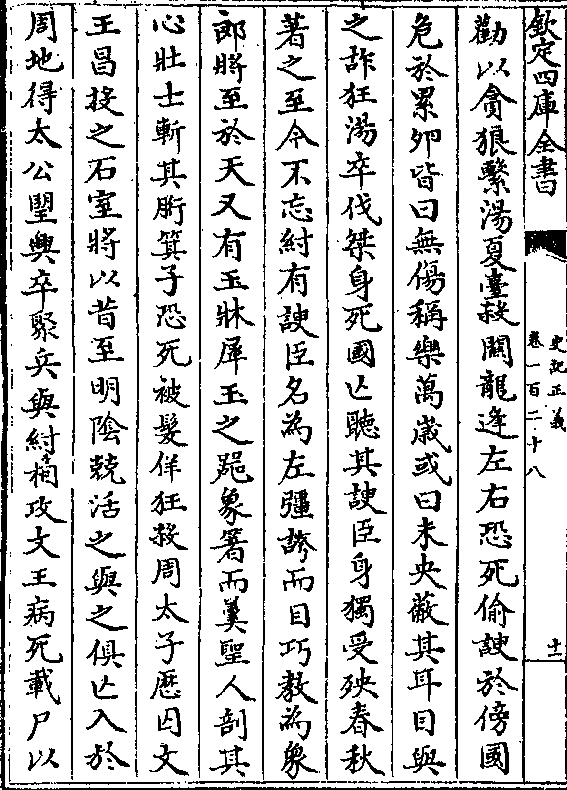 欽定四庫全書
史記正義
卷一百二十八
十一
勸以貪狼繫湯夏臺殺關龍逄左右恐死偷諛於傍國
危於累卵皆曰無傷稱樂萬歲或曰未央蔽其耳目與
之詐狂湯卒伐桀身死國亡聽其諛臣身獨受殃春秋
著之至今不忘紂有諛臣名為左彊誇而目巧教為象
郎將至於天又有玉牀犀玉之器象箸而羹聖人剖其
心壯士斬其胻箕子恐死被髮佯狂殺周太子歷囚文
王昌投之石室將以昔至明陰兢活之與之俱亡入於
周地得太公望興卒聚兵與紂相攻文王病死載尸以